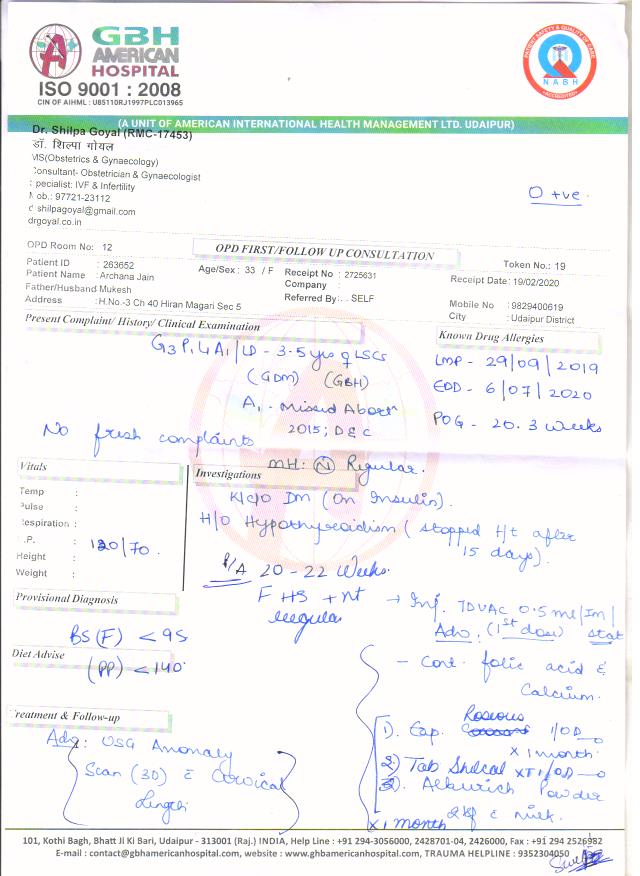 GBH
AMERICAN
HOSPITAL
ISO 9001 : 2008
CIN OF AIHML : U85110RJ1997PLC013965
PATIENT SAFETY & QUALITY OF CARE
NABH
ACCREDITED
(A UNIT OF AMERICAN INTERNATIONAL HEALTH MANAGEMENT LTD. UDAIPUR)
Dr. Shilpa Goyal (RMC-17453)
डॉ. शिल्पा गोयल
MS(Obstetrics & Gynaecology)
Consultant- Obstetrician & Gynaecologist
Specialist: IVF & Infertility
Mob.: 97721-23112
shilpagoyal@gmail.com
drgoyal.co.in
O +ve.
OPD Room No: 12
OPD FIRST/FOLLOW UP CONSULTATION
Token No.: 19
Patient ID : 263652
Age/Sex : 33 / F
Receipt No : 2725631
Receipt Date: 19/02/2020
Patient Name : Archana Jain
Company :
Father/Husband Mukesh
Referred By: . SELF
Mobile No : 9829400619
Address : H.No.-3 Ch 40 Hiran Magari Sec 5
City : Udaipur District
Present Complaint/ History/ Clinical Examination
Known Drug Allergies
G3 P1 L1 A1 / LD - 3.5 yrs of LSCS
(GDM) (GBH)
A1 - Missed Abort
2015; D&C
LMP - 29/09/2019
EDD - 6/07/2020
POG - 20.3 weeks
No fresh complaints
MH: (N) Regular.
Vitals
Investigations
Temp :
Pulse :
Respiration :
B.P. : 120/70.
Height :
Weight :
K/c/o DM (On Insulin).
H/O Hypothyroidism (stopped t/t after
15 days).
P/A 20-22 Weeks.
FHS + nt
regular
→ Inj. TDVAC 0.5 ml/Im/
(1st dose) stat
Provisional Diagnosis
BS(F) < 95
(PP) < 140
Diet Advise
Adv.
- Cont. folic acid &
Calcium.
Treatment & Follow-up
Adv: USG Anomaly
Scan (3D) & Cervical
Length
1). Cap. Roseous 1/OD
x 1 month.
2) Tab Shelcal XT 1/OD
3). Powder
x 1 month
101, Kothi Bagh, Bhatt Ji Ki Bari, Udaipur - 313001 (Raj.) INDIA, Help Line : +91 294-3056000, 2428701-04, 2426000, Fax : +91 294 2526982
E-mail : contact@gbhamericanhospital.com, website : www.gbhamericanhospital.com, TRAUMA HELPLINE : 9352304050